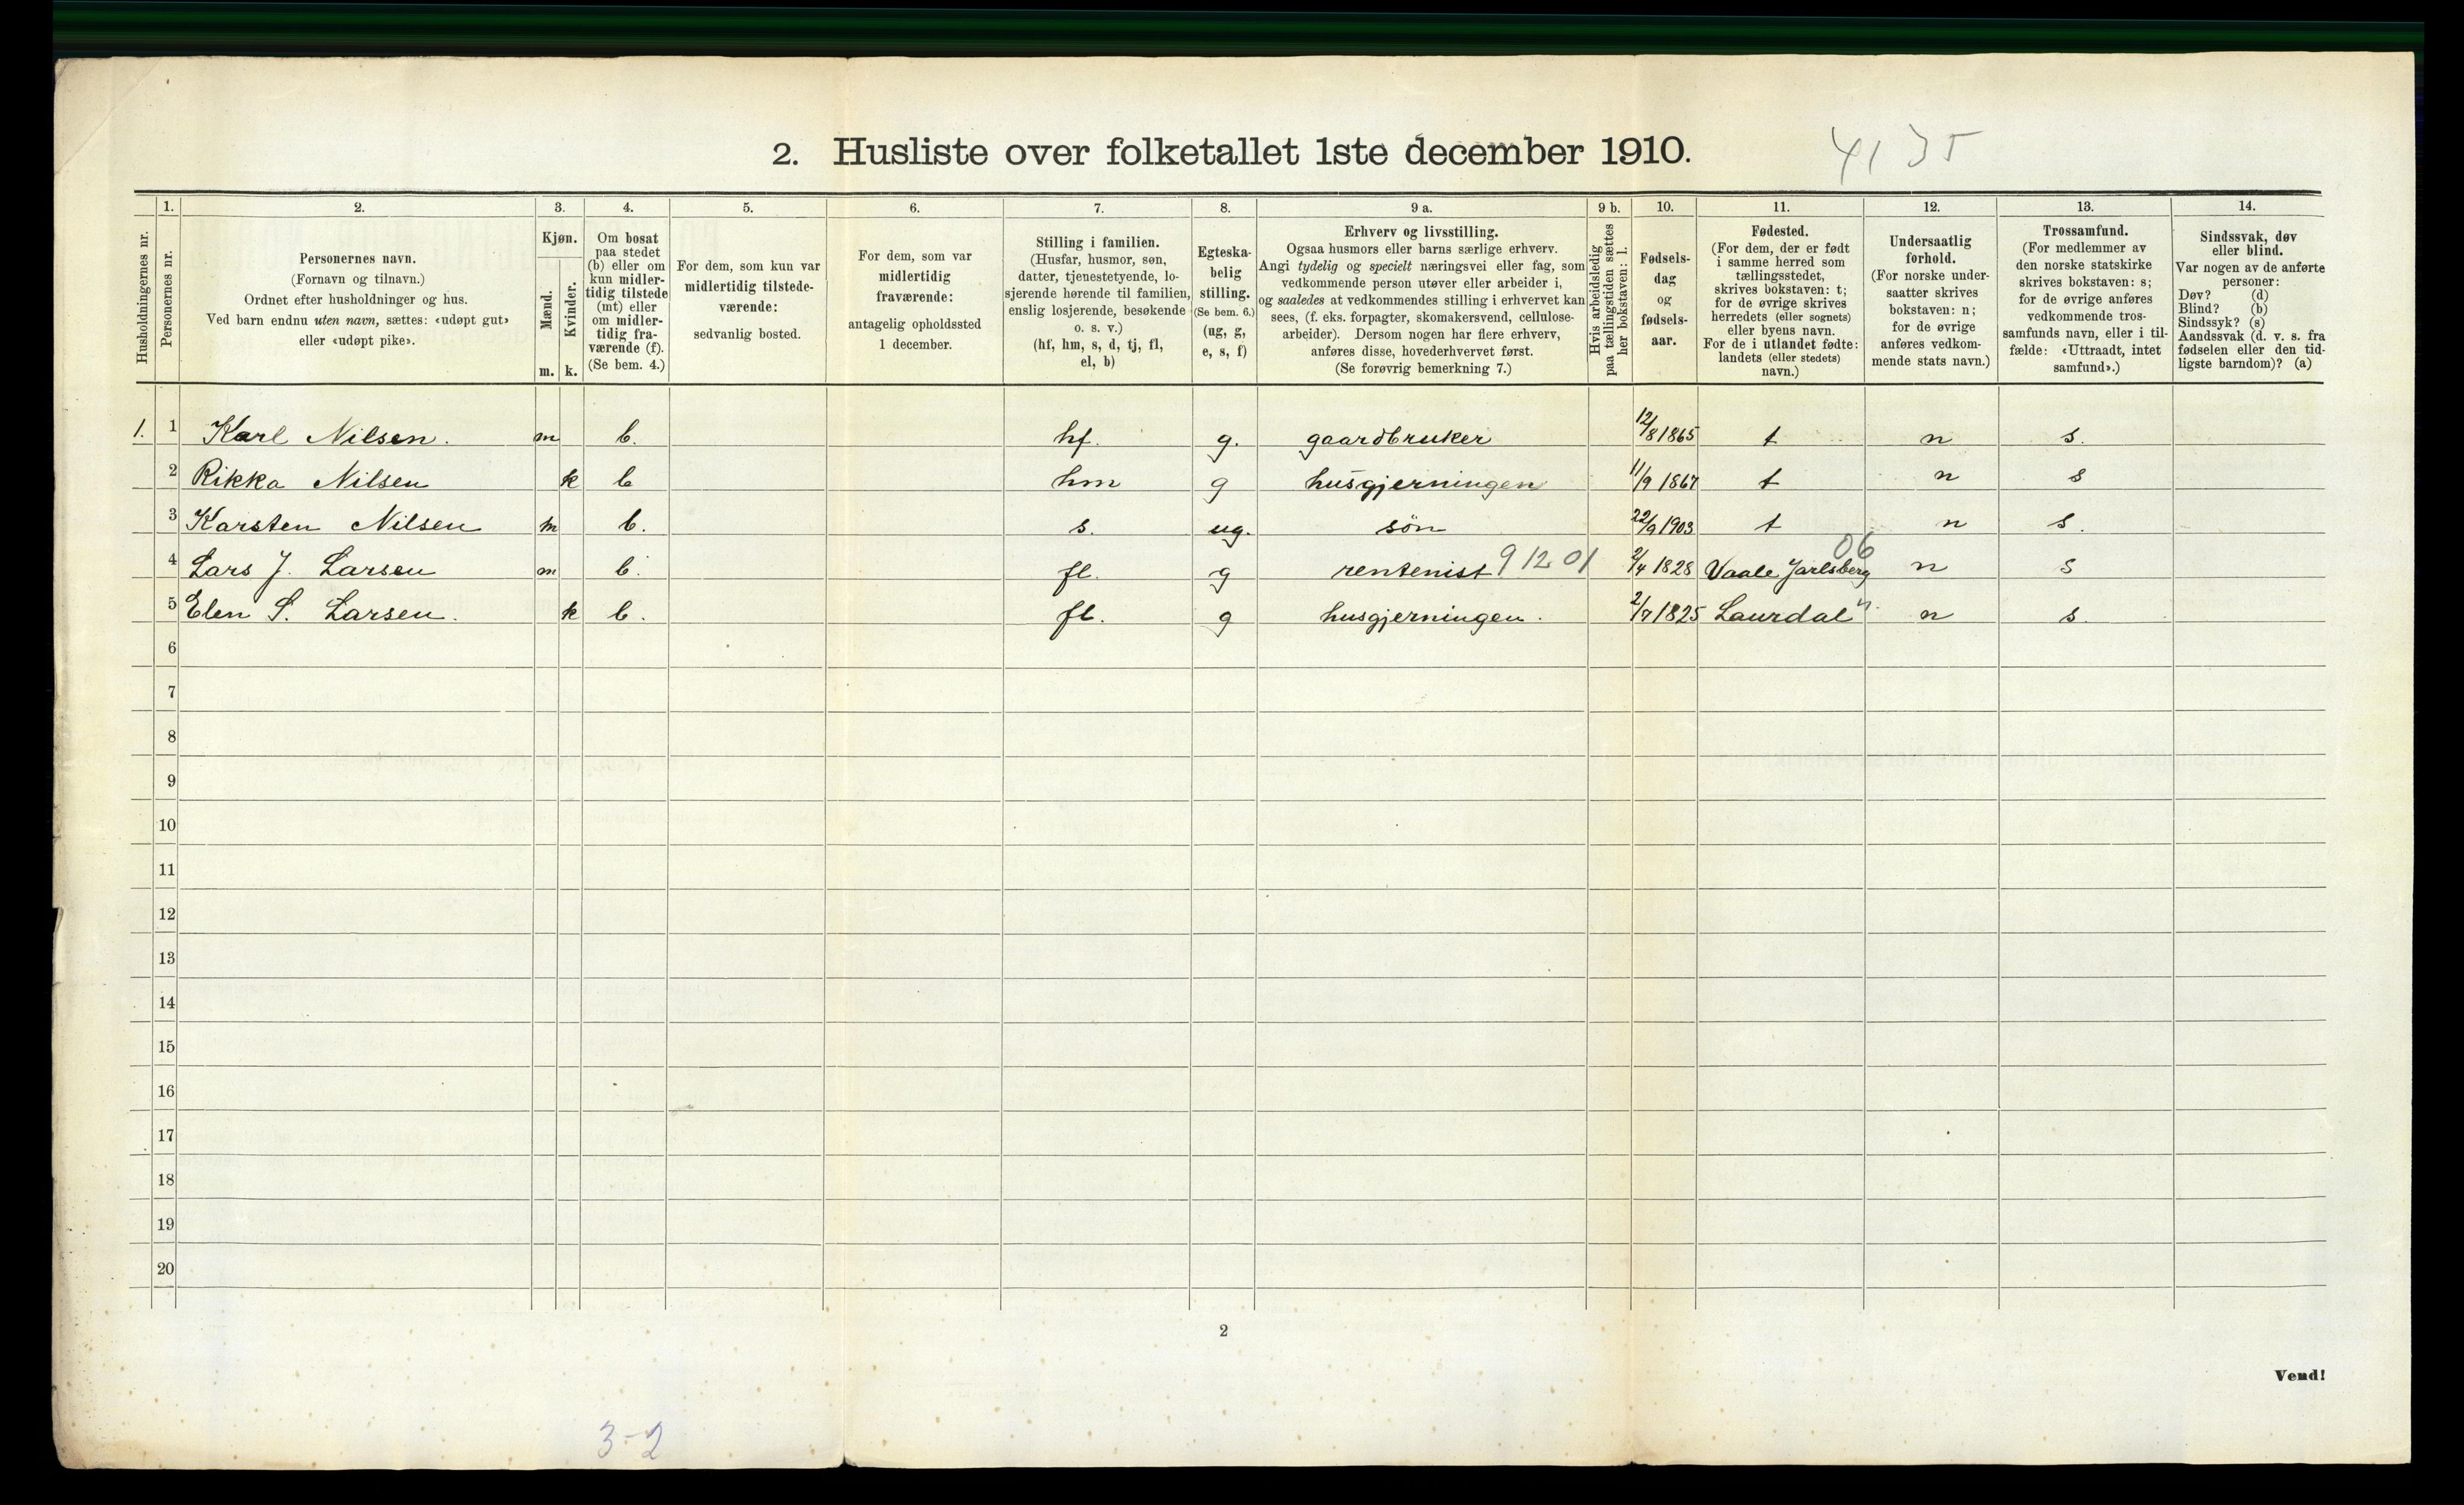 2. Husliste over folketallet 1ste december 1910.
4135
1. 2. 3. 4. 5. 6. 7. 8. 9 a. 9 b. 10. 11. 12. 13. 14.
Husholdningernes nr.
Personernes nr.
Personernes navn.
(Fornavn og tilnavn.)
Ordnet efter husholdninger og hus.
Ved barn endnu uten navn, sættes: «udøpt gut»
eller «udøpt pike».
Kjøn.
Mænd.
Kvinder.
m. k.
Om bosat
paa stedet
(b) eller om
kun midler-
tidig tilstede
(mt) eller
om midler-
tidig fra-
værende (f).
(Se bem. 4.)
For dem, som kun var
midlertidig tilstede-
værende:
sedvanlig bosted.
For dem, som var
midlertidig
fraværende:
antagelig opholdssted
1 december.
Stilling i familien.
(Husfar, husmor, søn,
datter, tjenestetyende, lo-
sjerende hørende til familien,
enslig losjerende, besøkende
o. s. v.)
(hf, hm, s, d, tj, fl,
el, b)
Egteska-
belig
stilling.
(Se bem. 6.)
(ug, g,
e, s, f)
Erhverv og livsstilling.
Ogsaa husmors eller barns særlige erhverv.
Angi tydelig og specielt næringsvei eller fag, som
vedkommende person utøver eller arbeider i,
og saaledes at vedkommendes stilling i erhvervet kan
sees, (f. eks. forpagter, skomakersvend, cellulose-
arbeider). Dersom nogen har flere erhverv,
anføres disse, hovederhvervet først.
(Se forøvrig bemerkning 7.)
Hvis arbeidsledig
paa tællingstiden sættes
her bokstaven: l.
Fødsels-
dag
og
fødsels-
aar.
Fødested.
(For dem, der er født
i samme herred som
tællingsstedet,
skrives bokstaven: t;
for de øvrige skrives
herredets (eller sognets)
eller byens navn.
For de i utlandet fødte:
landets (eller stedets)
navn.)
Undersaatlig
forhold.
(For norske under-
saatter skrives
bokstaven: n;
for de øvrige
anføres vedkom-
mende stats navn.)
Trossamfund.
(For medlemmer av
den norske statskirke
skrives bokstaven: s;
for de øvrige anføres
vedkommende tros-
samfunds navn, eller i til-
fælde: «Uttraadt, intet
samfund».)
Sindssvak, døv
eller blind.
Var nogen av de anførte
personer:
Døv? (d)
Blind? (b)
Sindssyk? (s)
Aandssvak (d. v. s. fra
fødselen eller den tid-
ligste barndom)? (a)
1. 1 Karl Nilsen. m b. hf. g. gaardbruker 12/8 1865 t n s.
2 Rikka Nilsen k b hm g husgjerningen 11/9 1867 t n s
3 Karsten Nilsen m b. s. ug. sön 22/9 1903 t n s.
4 Lars J. Larsen m b. fl. g rentenist 91201 2/4 1828 Vaale Jarlsberg 06 n s
5 Elen S. Larsen. k b. fl. g husgjerningen. 2/7 1825 Laurdal " n s.
6
7
8
9
10
11
12
13
14
15
16
17
18
19
20
2
Vend!
3-2